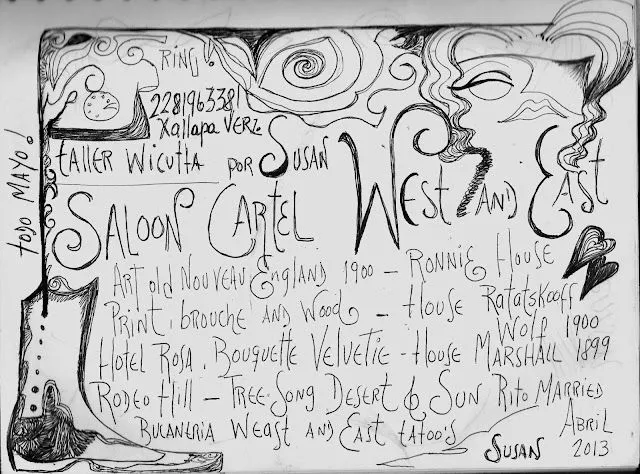 RING!
2281963381
Xallapa VERZ.
taller Wicutta por Susan
todo mayo!
Saloon Cartel West and East
Art old Nouveau England 1900 – Ronnie House
Print, brouche and Wood – House Ratatskooff
Wolp 1900
Hotel Rosa, Bouquette Velvetie - House Marshall 1899
Rodeo Hill – Tree-Song Desert & Sun Rito Married
Bucaneria Weast and East tatoo's
Abril
2013
Susan